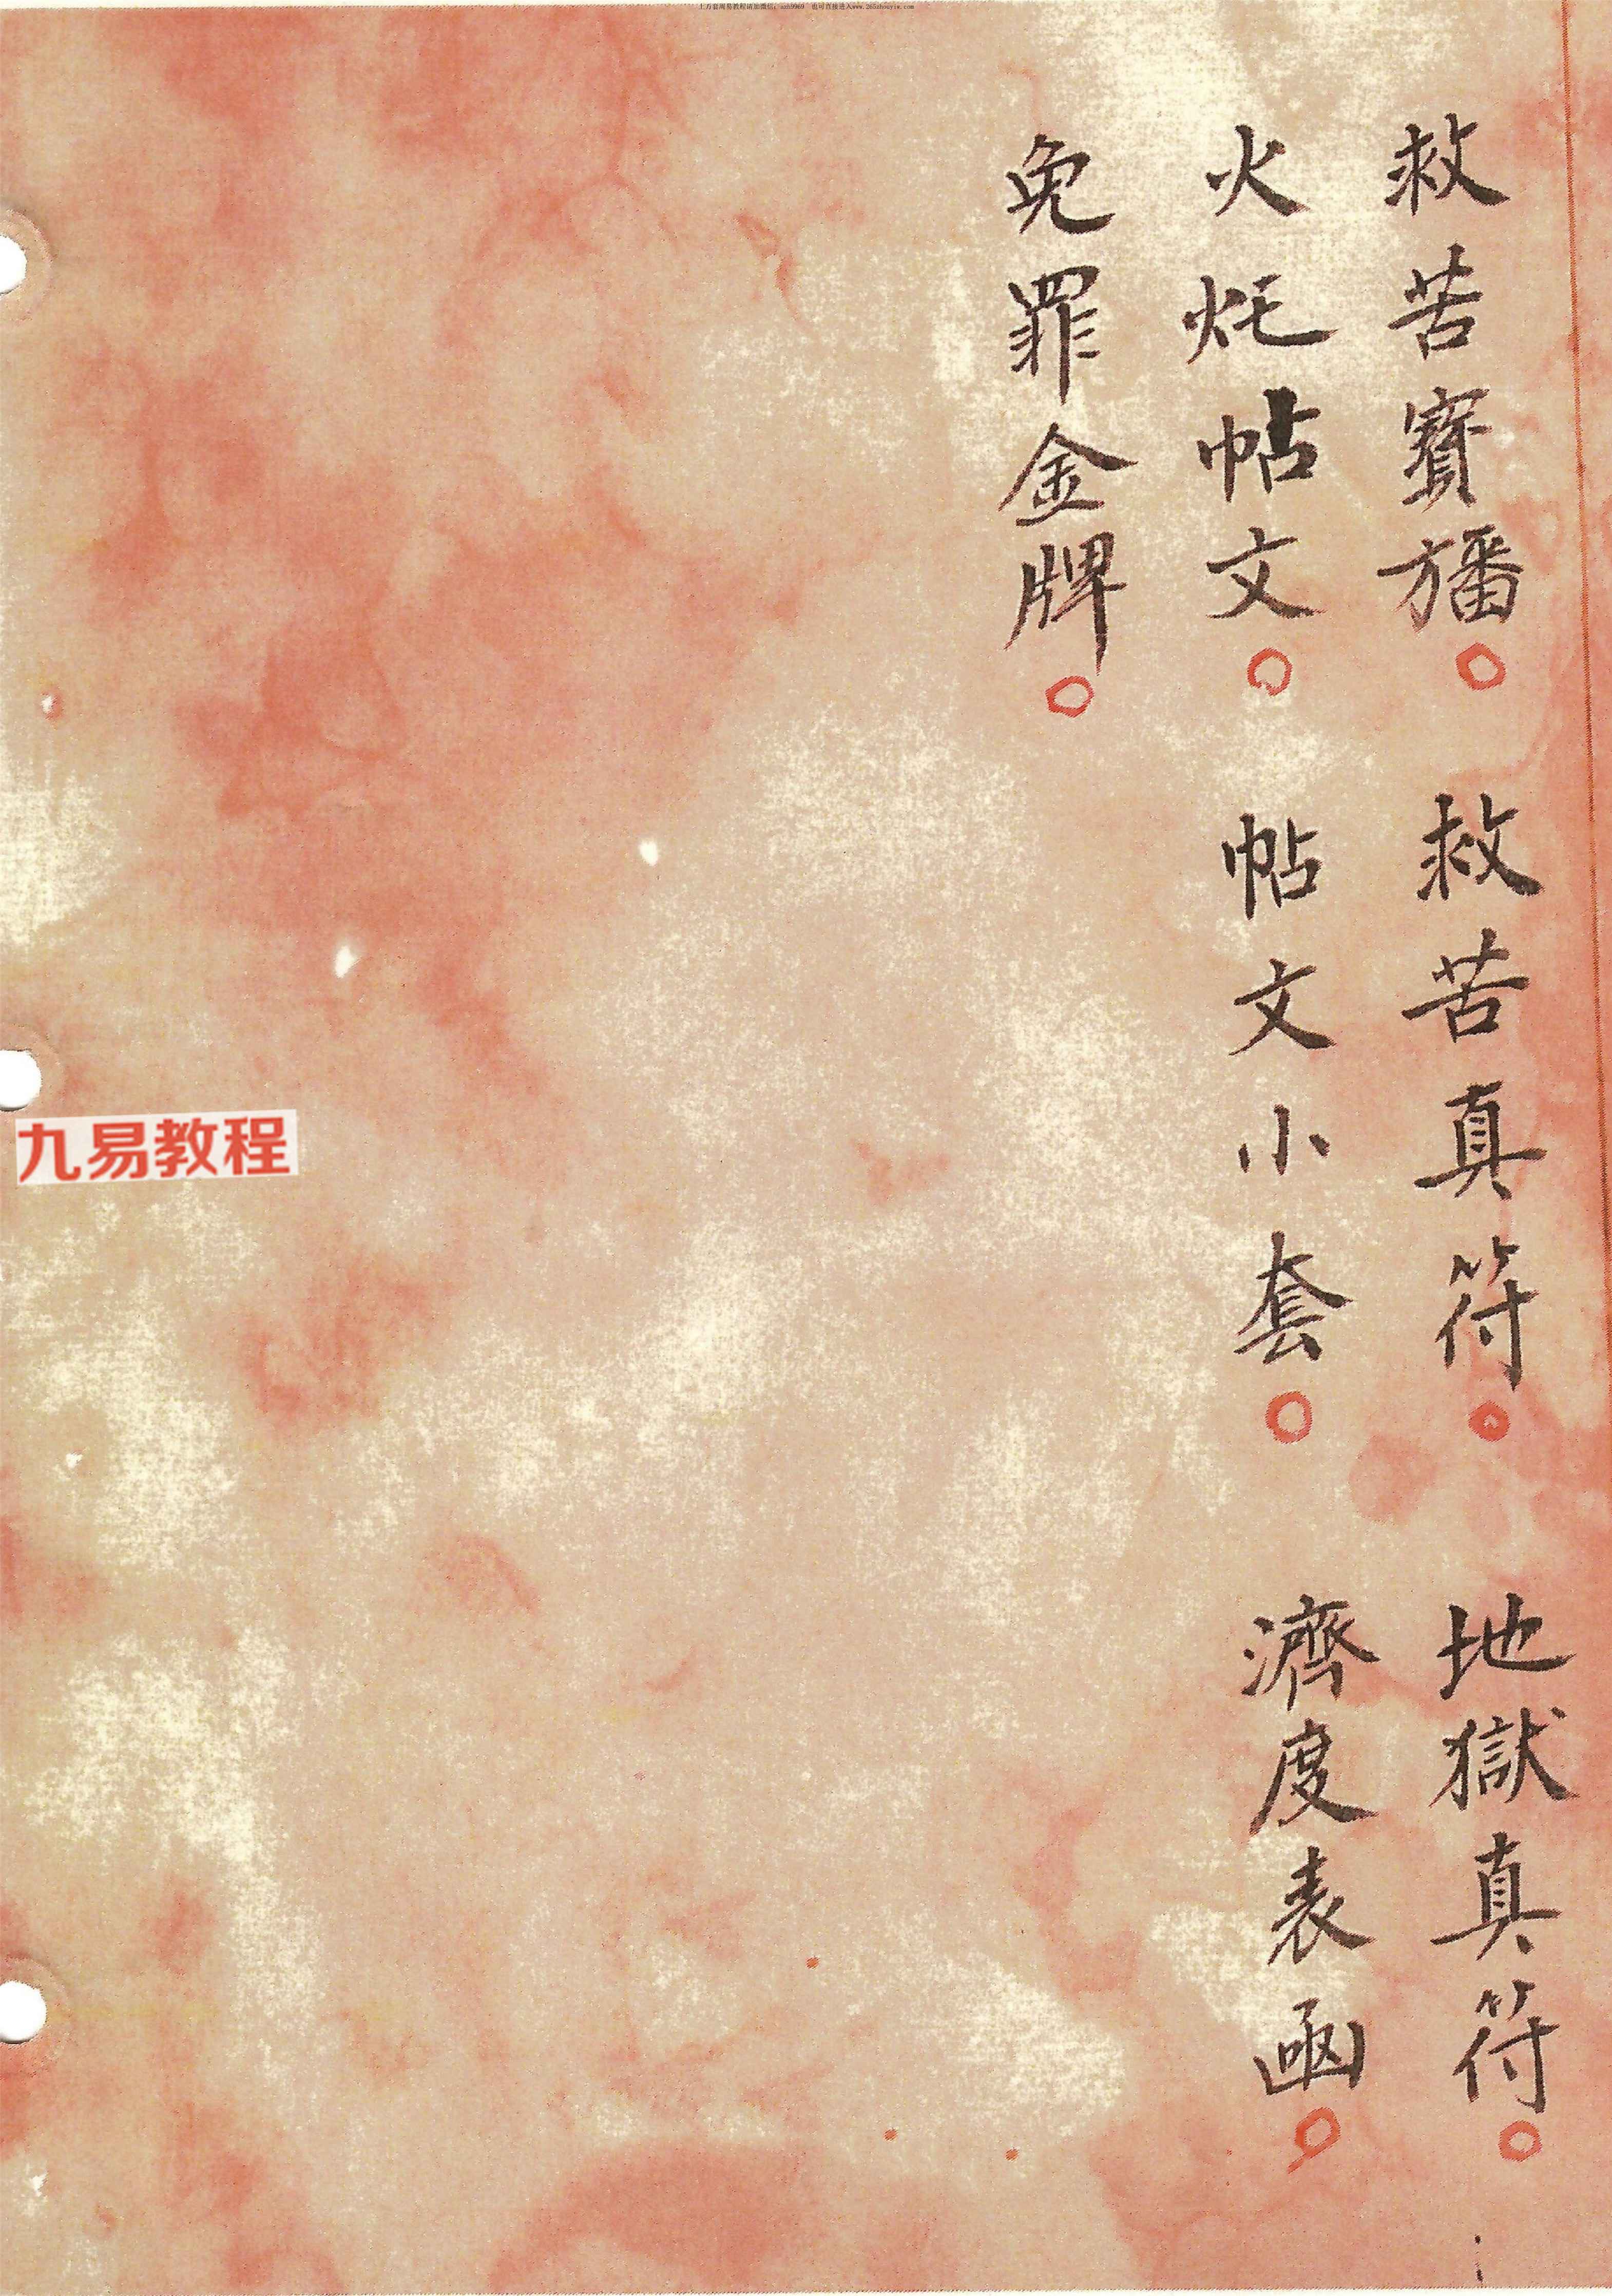 救苦寳旛 救苦真符 地獄真符
火炉帖文 帖文小套 濟度表函
免罪金牌
九易教程